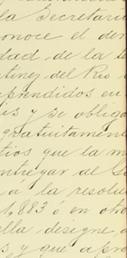 la Secretaría
onoce el der
dad de la t
tinez del Rio
prendidos en
us y se oblig
gratuitamen
tios que la m
entregar de So
a la resolu
1,883 ó en otro
lla designe,
s y que apro